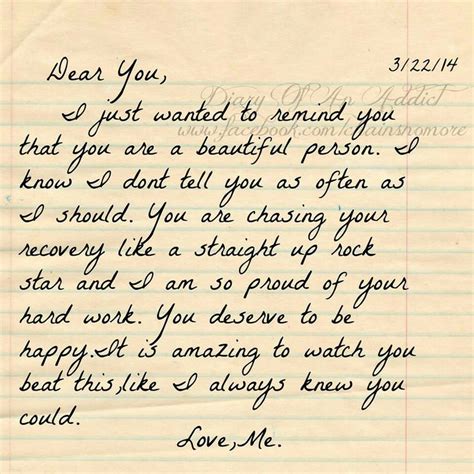 3/22/14
Dear You,
Diary Of An Addict
I just wanted to remind you
www.facebook.com/chainsnomore
that you are a beautiful person. I
know I dont tell you as often as
I should. You are chasing your
recovery like a straight up rock
star and I am so proud of your
hard work. You deserve to be
happy.It is amazing to watch you
beat this,like I always knew you
could.
Love,Me.